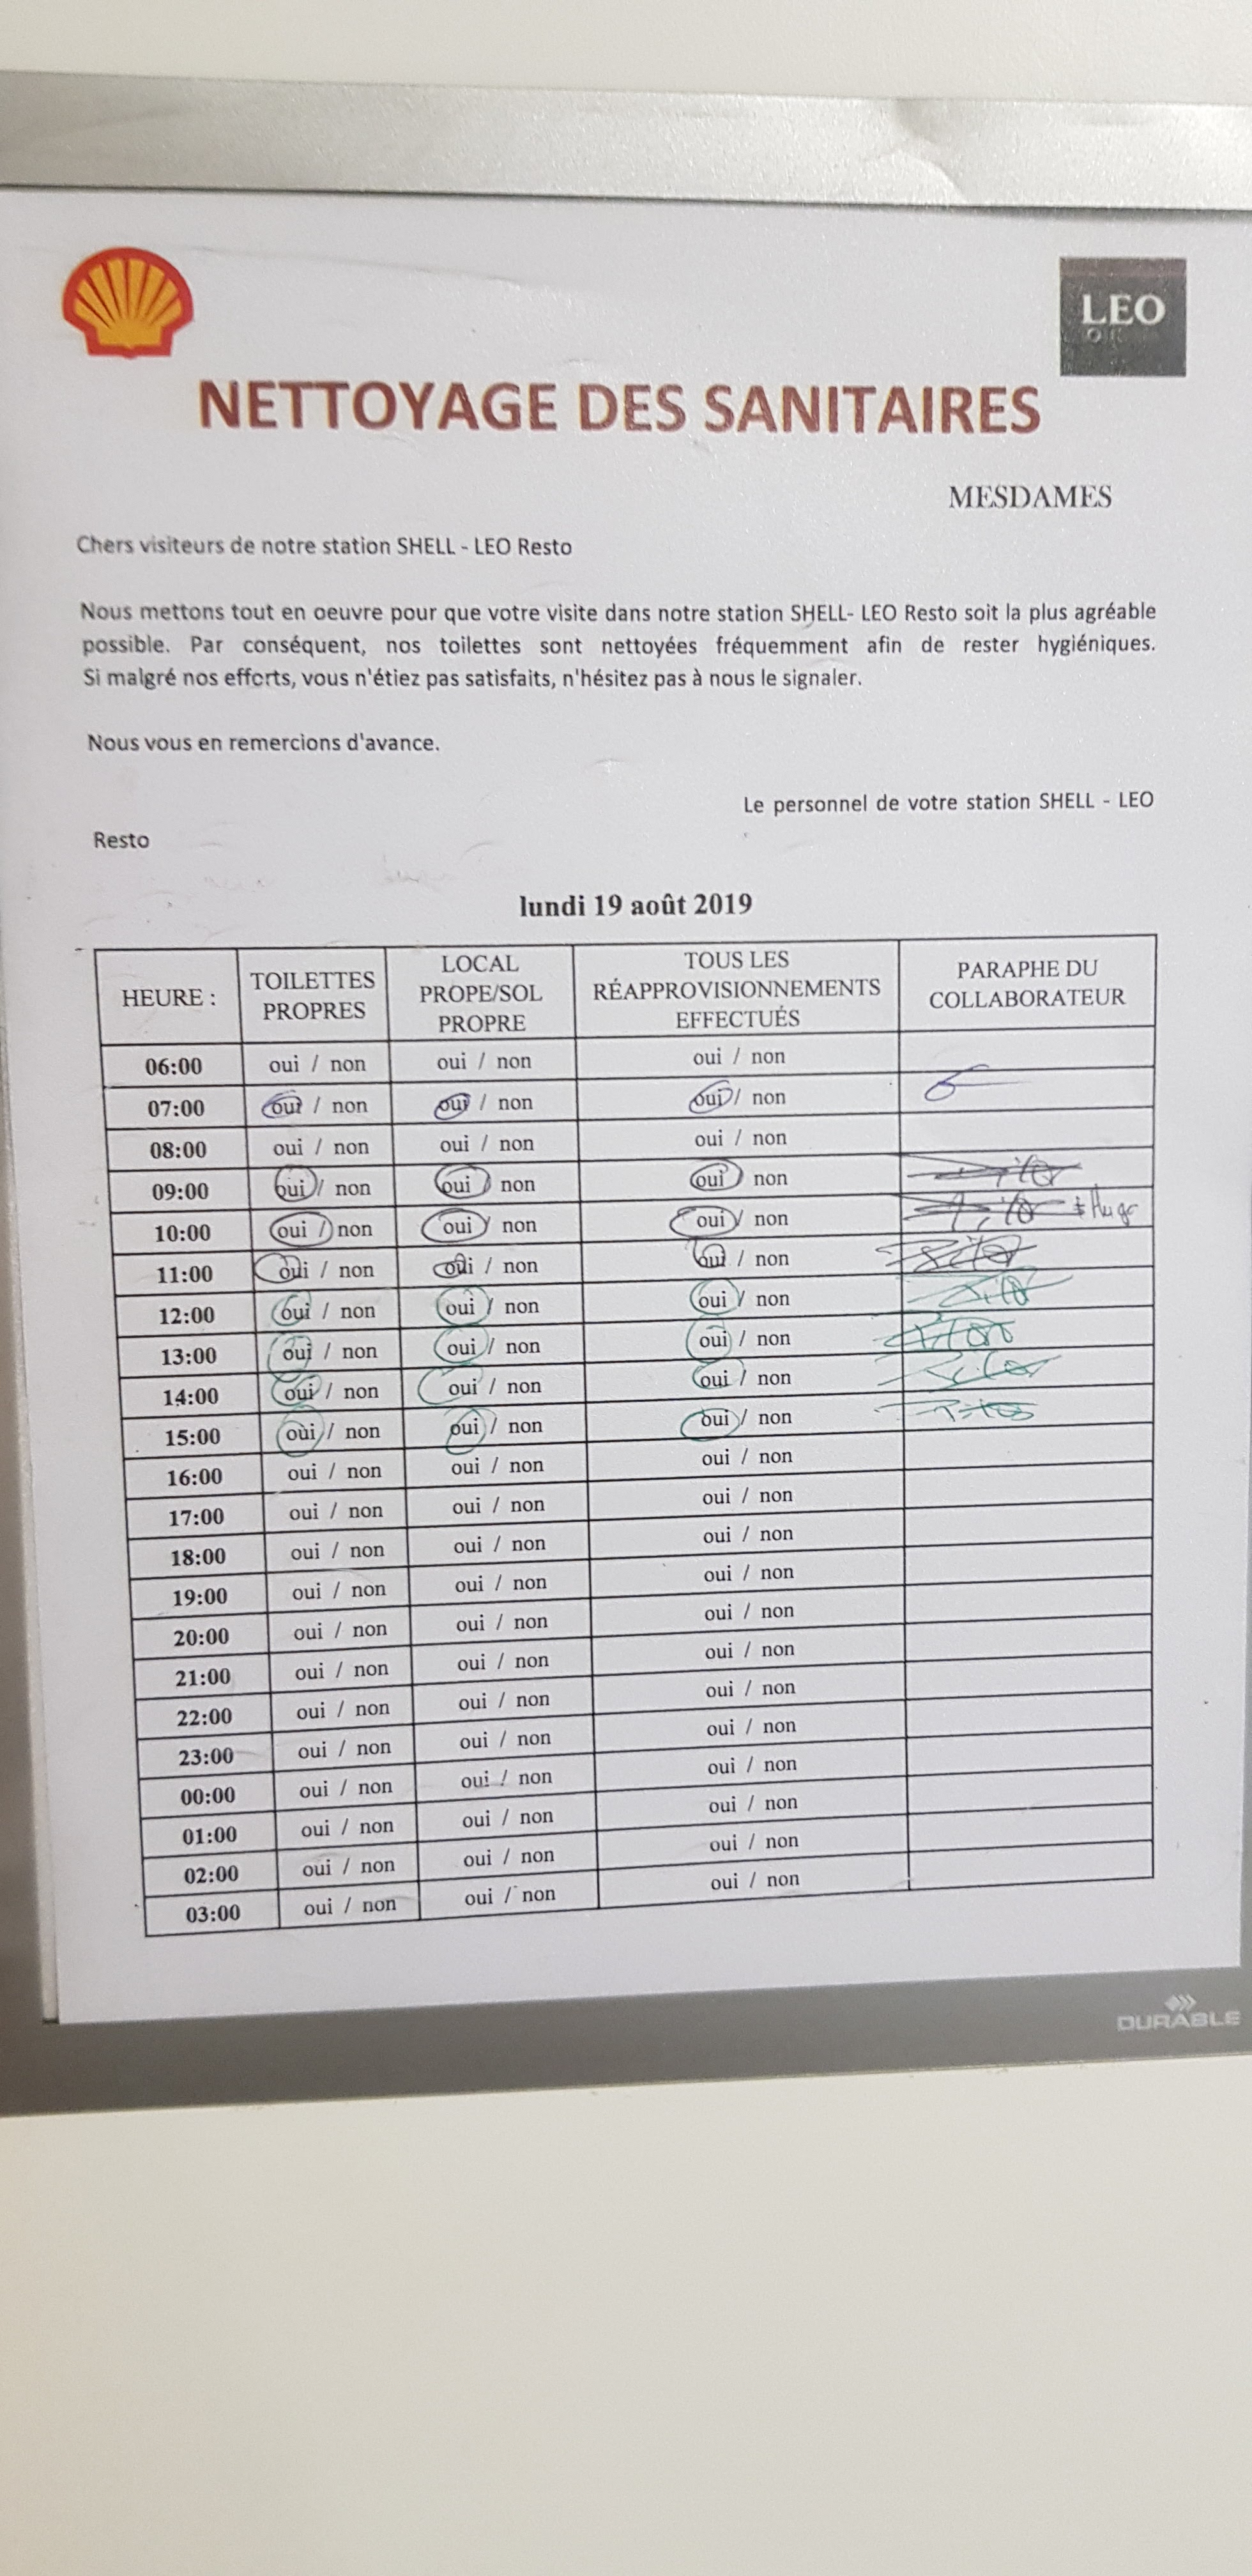 LEO
NETTOYAGE DES SANITAIRES
MESDAMES
Chers visiteurs de notre station SHELL - LEO Resto
Nous mettons tout en oeuvre pour que votre visite dans notre station SHELL- LEO Resto soit la plus agréable
possible. Par conséquent, nos toilettes sont nettoyées fréquemment afin de rester hygiéniques.
Si malgré nos efforts, vous n'étiez pas satisfaits, n'hésitez pas à nous le signaler.
Nous vous en remercions d'avance.
Le personnel de votre station SHELL - LEO
Resto
lundi 19 août 2019
HEURE : TOILETTES PROPRES LOCAL PROPE/SOL PROPRE TOUS LES RÉAPPROVISIONNEMENTS EFFECTUÉS PARAPHE DU COLLABORATEUR
06:00 oui / non oui / non oui / non
07:00 oui / non oui / non oui / non
08:00 oui / non oui / non oui / non
09:00 oui / non oui / non oui / non
10:00 oui / non oui / non oui / non
11:00 oui / non oui / non oui / non
12:00 oui / non oui / non oui / non
13:00 oui / non oui / non oui / non
14:00 oui / non oui / non oui / non
15:00 oui / non oui / non oui / non
16:00 oui / non oui / non oui / non
17:00 oui / non oui / non oui / non
18:00 oui / non oui / non oui / non
19:00 oui / non oui / non oui / non
20:00 oui / non oui / non oui / non
21:00 oui / non oui / non oui / non
22:00 oui / non oui / non oui / non
23:00 oui / non oui / non oui / non
00:00 oui / non oui / non oui / non
01:00 oui / non oui / non oui / non
02:00 oui / non oui / non oui / non
03:00 oui / non oui / non oui / non
DURABLE